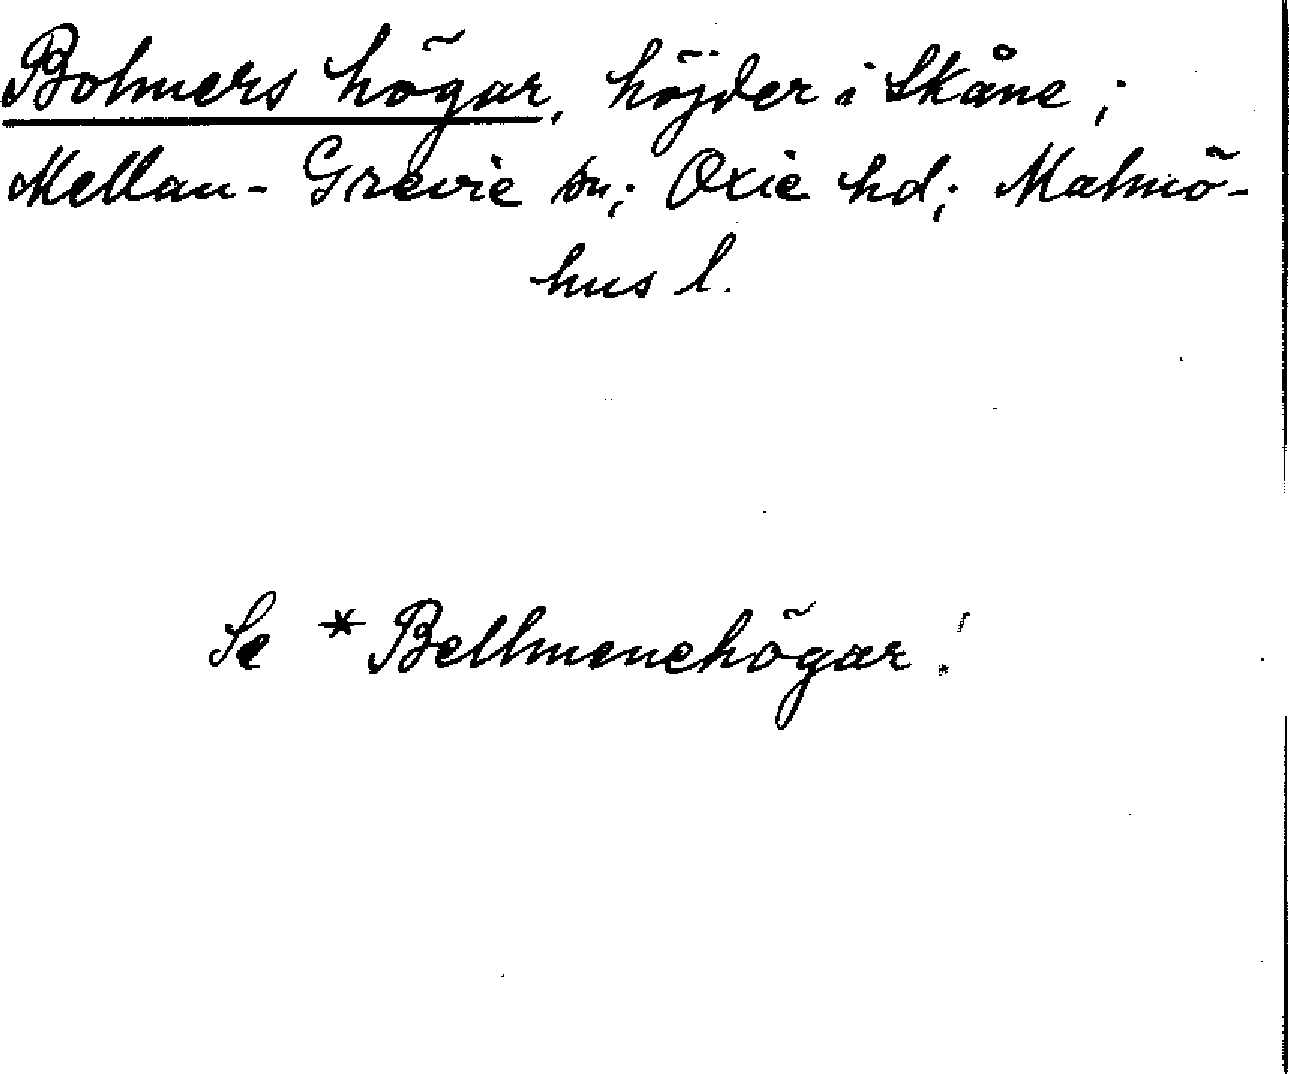 Bolmers högar, höjder i Skåne;
Mellan-Grevie sn; Oxie hd; Malmö-
hus l.
Se *Bellmenehögar!